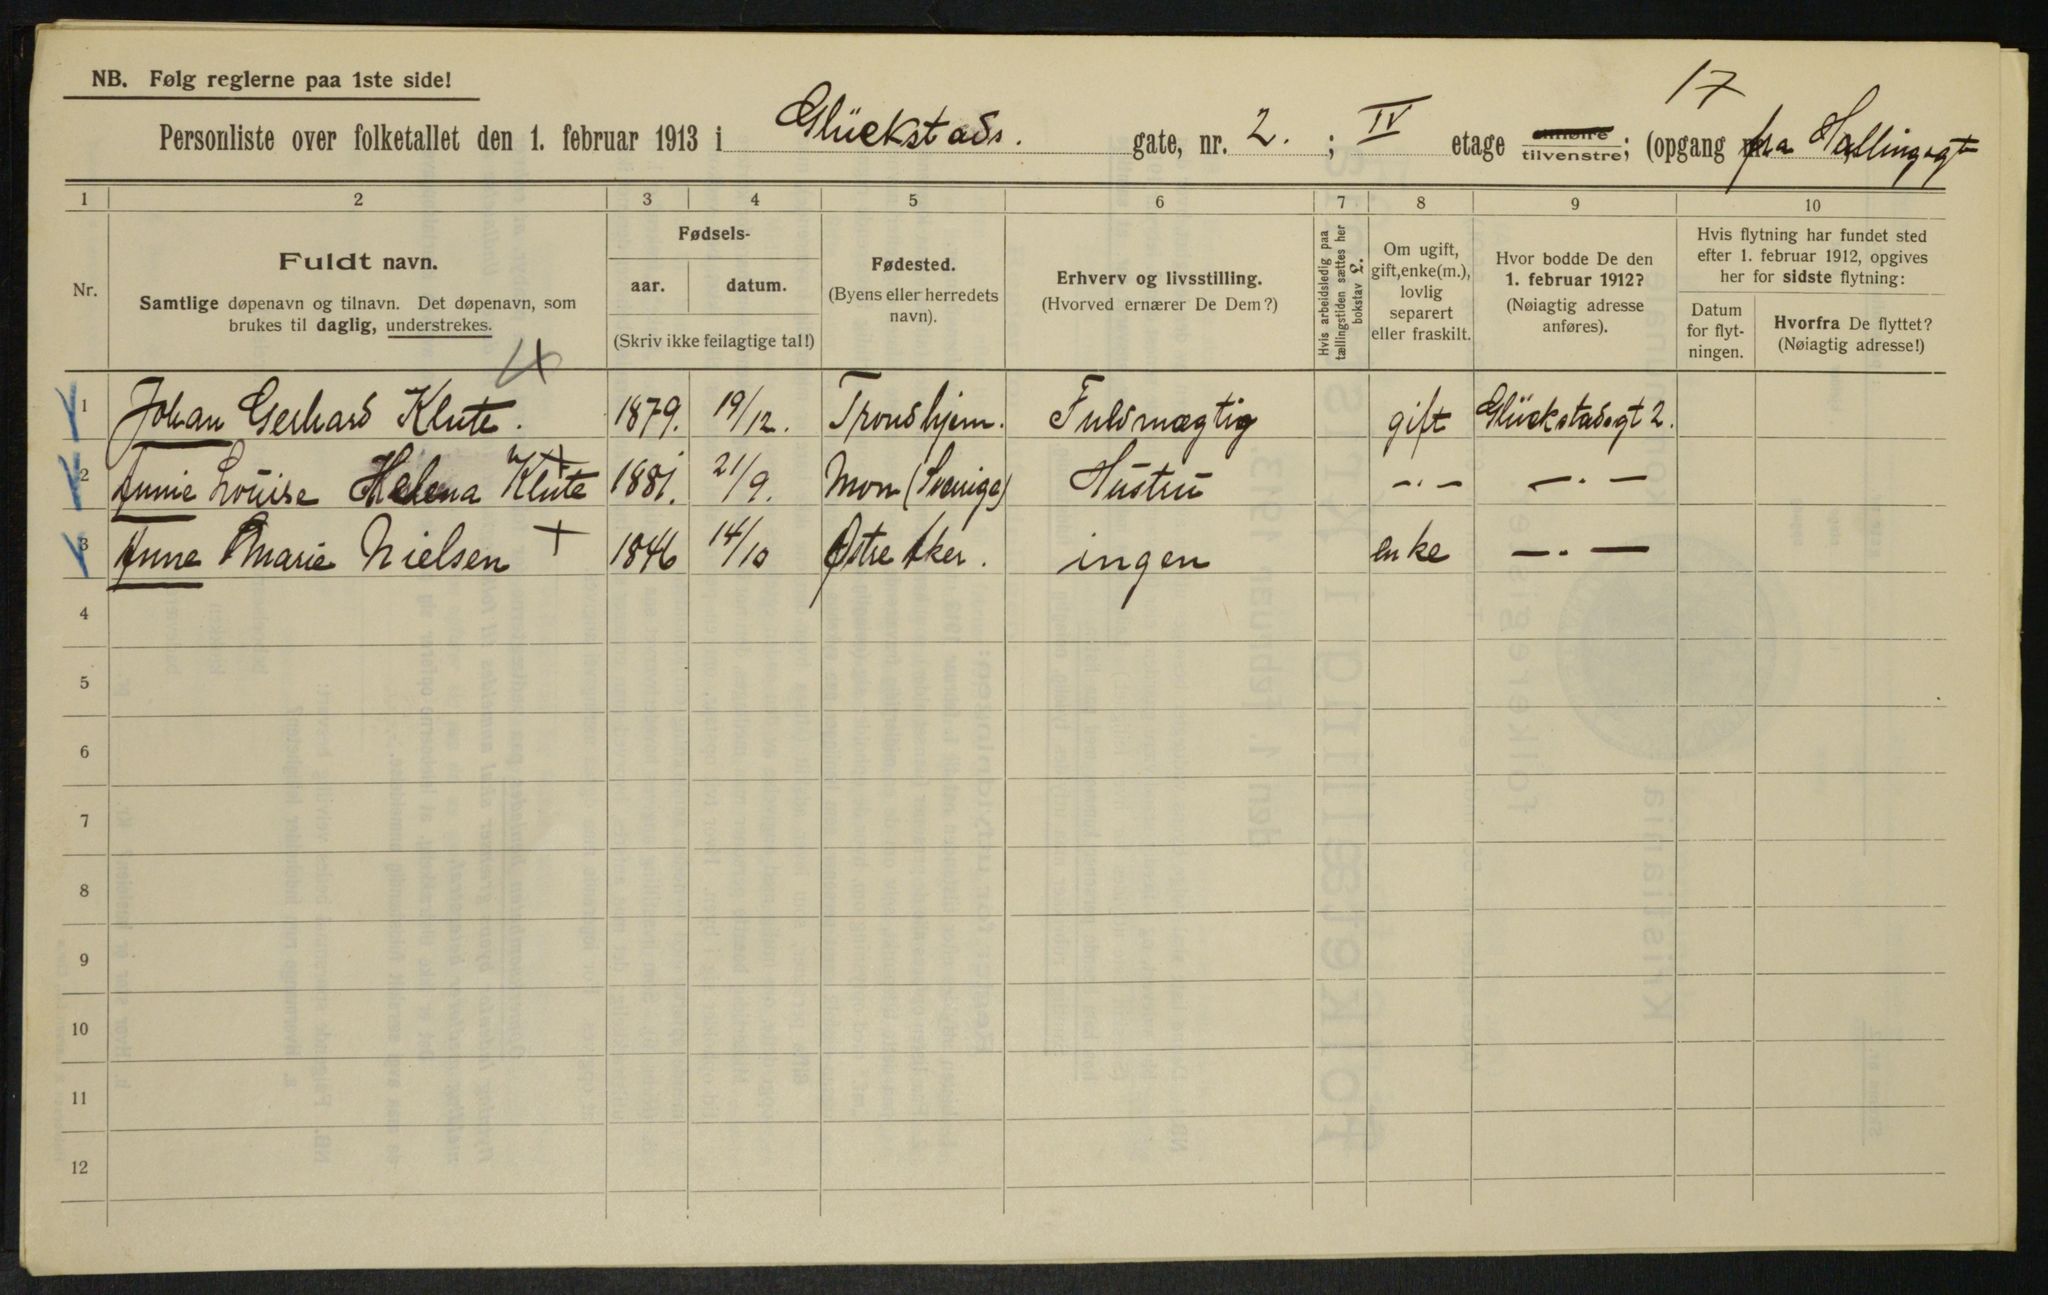 17
NB. Følg reglerne paa 1ste side!
Personliste over folketallet den 1. februar 1913 i Glückstads. gate, nr. 2. ; IV etage tilvenstre; (opgang fra Hallingsgt
1 2 3 4 5 6 7 8 9 10
Nr.
Fuldt navn.
Samtlige døpenavn og tilnavn. Det døpenavn, som
brukes til daglig, understrekes.
Fødsels-
aar. datum.
(Skriv ikke feilagtige tal!)
Fødested.
(Byens eller herredets
navn).
Erhverv og livsstilling.
(Hvorved ernærer De Dem?)
Hvis arbeidsledig paa
tællingstiden sættes her
bokstav L.
Om ugift,
gift, enke(m.),
lovlig
separert
eller fraskilt.
Hvor bodde De den
1. februar 1912?
(Nøiagtig adresse
anføres).
Hvis flytning har fundet sted
efter 1. februar 1912, opgives
her for sidste flytning:
Datum
for flyt-
ningen.
Hvorfra De flyttet?
(Nøiagtig adresse!)
1 Johan Gerhard Klute. 1879. 19/12. Trondhjem. Fuldmægtig gift Glückstadsgt 2.
2 Annie Louise Helena Klute 1881. 21/9. Mon (Sverige) Hustru -.- -.-
3 Anne Marie Nielsen 1846 14/10 Østre Aker. ingen enke -.-
4
5
6
7
8
9
10
11
12